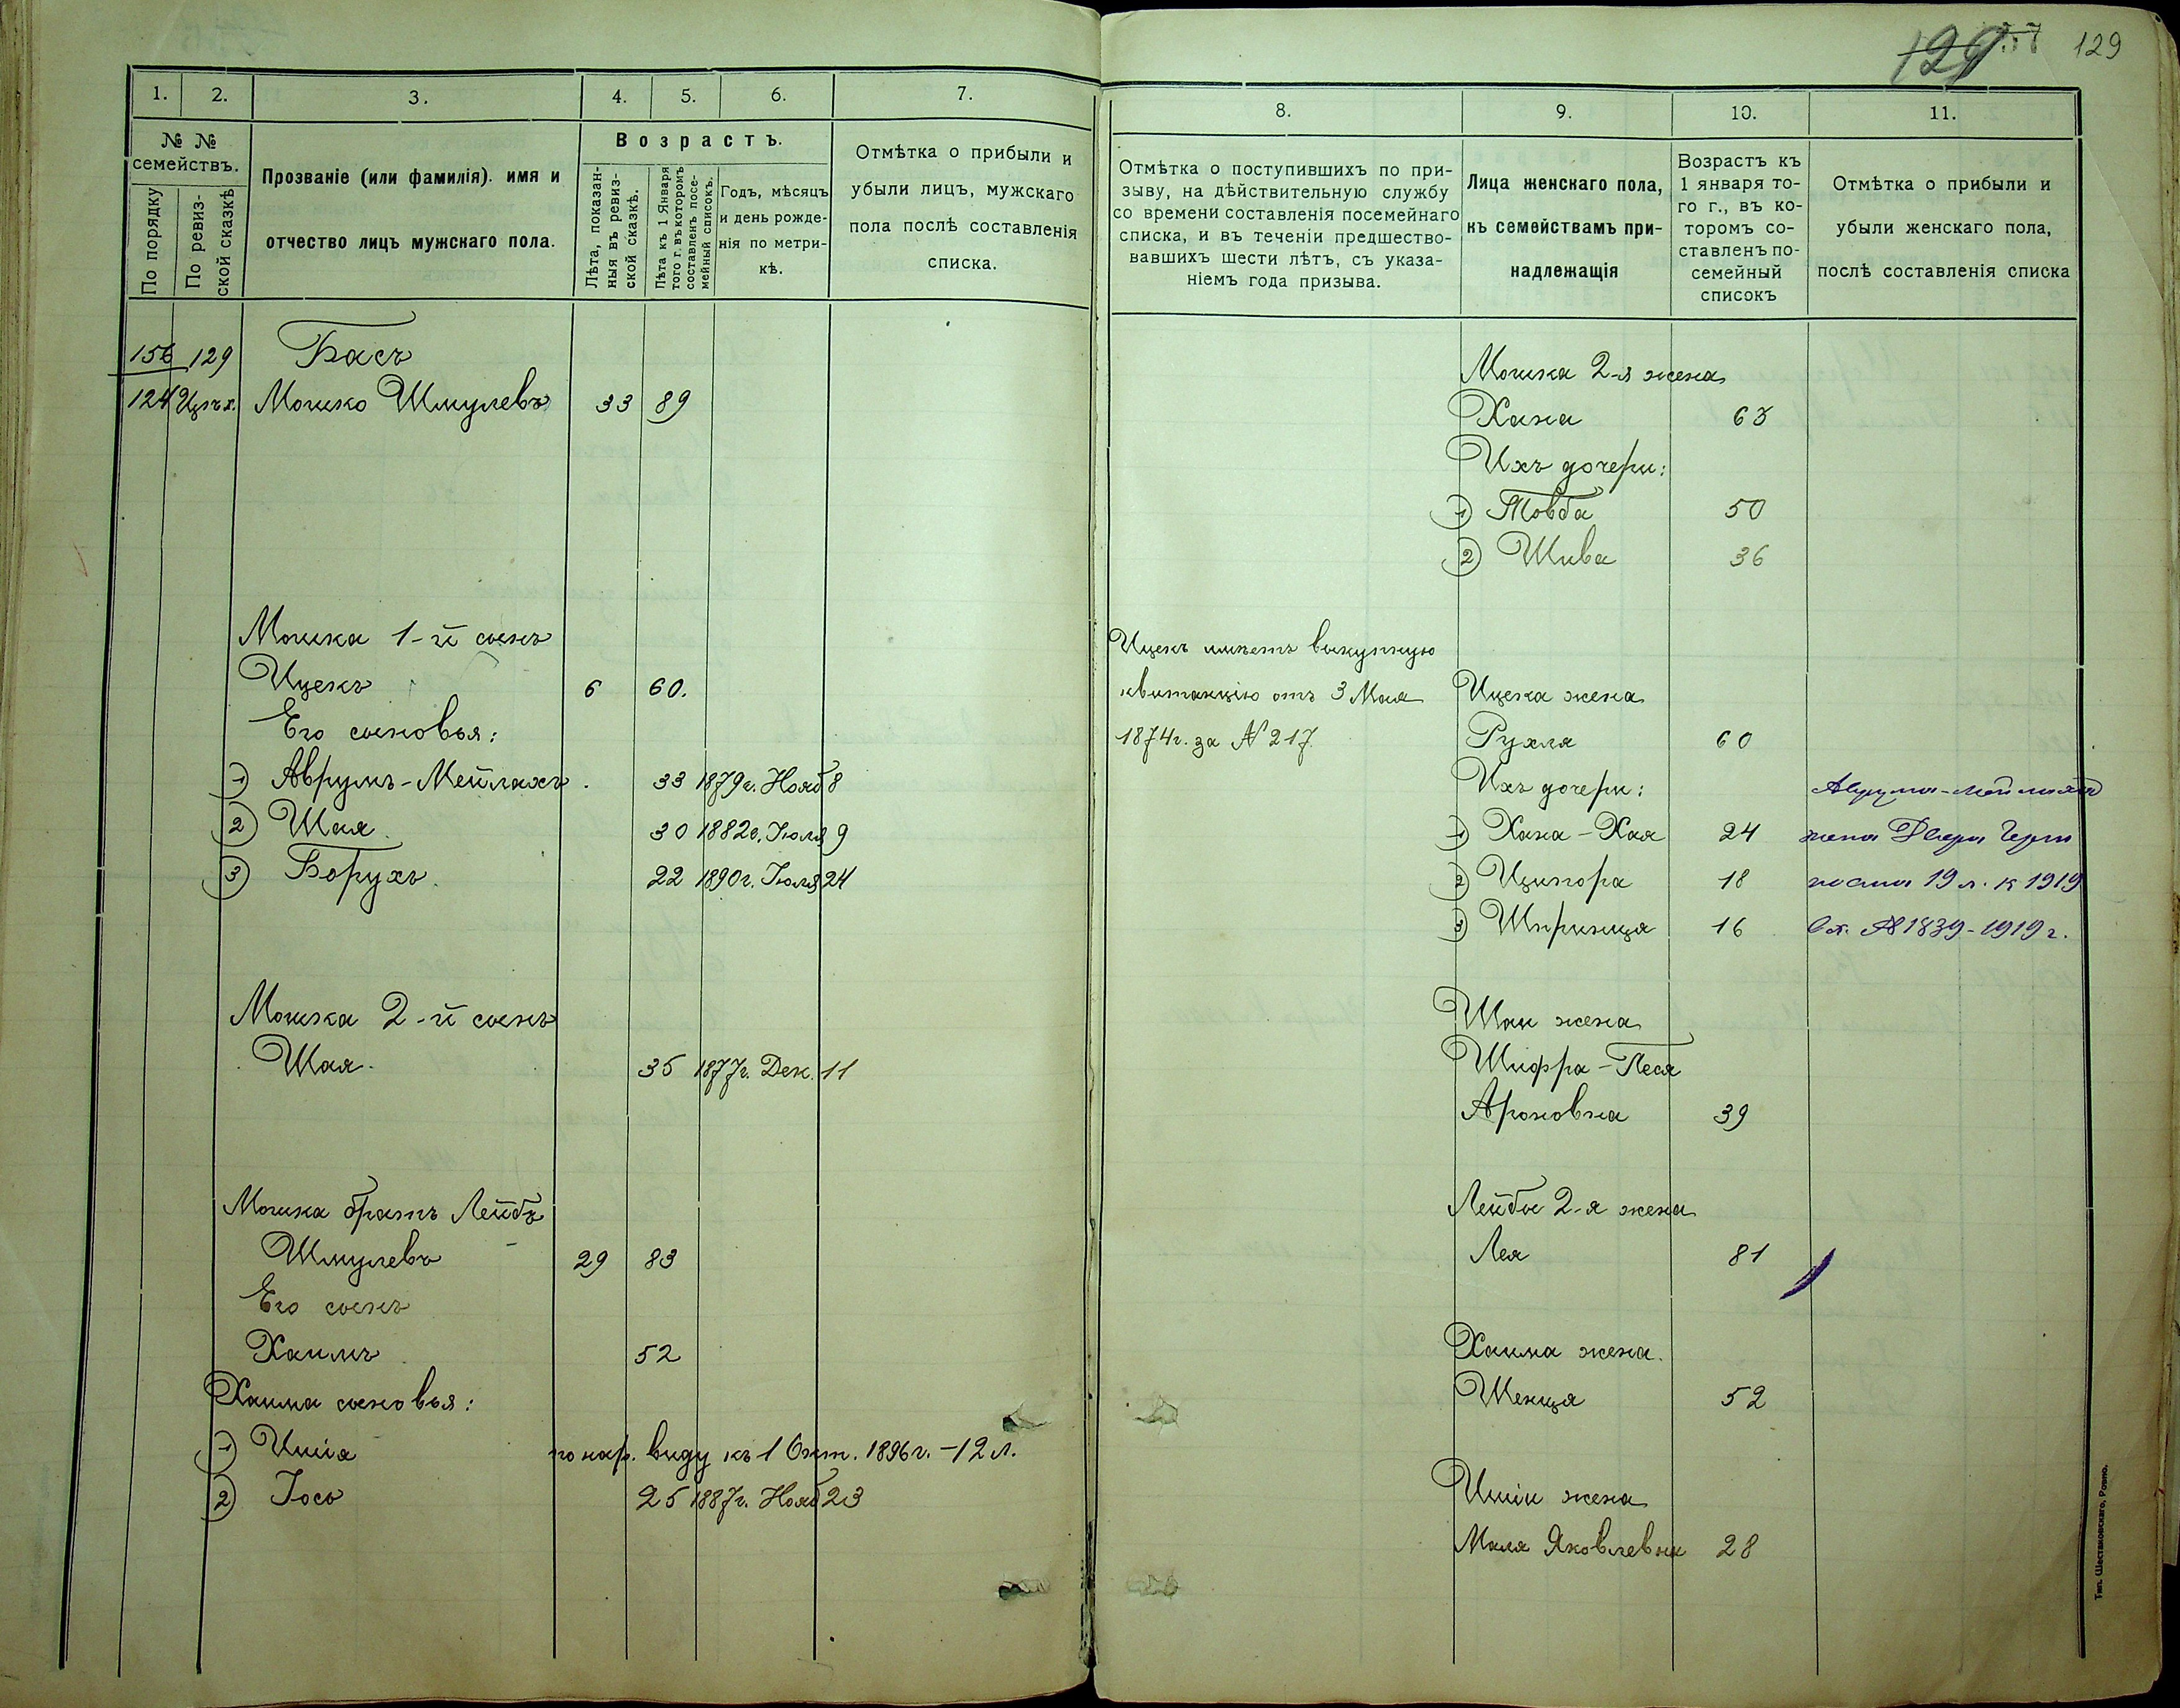 129 129
1. 2. 3. 4. 5. 6. 7.
№ № семействъ.
По порядку
По ревизской сказкѣ
Прозваніе (или фамилія). имя и
отчество лицъ мужскаго пола.
Возрастъ.
Лѣта, показан-
ныя въ ревиз-
ской сказкѣ.
Лѣта къ 1 Января
того г. въ которомъ
составленъ посе-
мейный списокъ.
Годъ, мѣсяцъ
и день рожде-
нія по метри-
кѣ.
Отмѣтка о прибыли и
убыли лицъ, мужскаго
пола послѣ составленія
списка.
156 129 Басъ
124 Мошко Шмулевъ 33 89
Мошка 1-й сынъ
Ицекъ 6 60.
Его сыновья:
1) Аврумъ-Мейлахъ 33 1879г. Нояб 8
2) Шая 30 1882г. Іюля 9
3) Борухъ 22 1890г. Іюля 24
Мошка 2-й сынъ
Шая 35 1877г. Дек. 11
Мошка братъ Лейбъ
Шмулевъ 29 83
Его сынъ
Хаимъ 52
Хаима сыновья:
1) Ишія по нар. виду къ 1 Окт. 1896г. - 12 л.
2) Іось 25 1887г. Нояб 23
8. 9. 10. 11.
Отмѣтка о поступившихъ по при-
зыву, на дѣйствительную службу
со времени составленія посемейнаго
списка, и въ теченіи предшество-
вавшихъ шести лѣтъ, съ указа-
ніемъ года призыва.
Лица женскаго пола,
къ семействамъ при-
надлежащія
Возрастъ къ
1 января то-
го г., въ ко-
торомъ со-
ставленъ по-
семейный
списокъ
Отмѣтка о прибыли и
убыли женскаго пола,
послѣ составленія списка
Мошка 2-я жена
Хана 63
Ихъ дочери:
1) Товба 50
2) Шива 36
Ицекъ имѣетъ выкупную
квитанцію отъ 3 Мая
1874г. за № 217.
Ицека жена
Рухля 60
Ихъ дочери:
1) Хана-Хая 24
2) Ципора 18
3) Шпринця 16
Аврума-Мейлаха
жена Двейра
19 л. к 1919
вх. № 1839-1919 г.
Шаи жена
Шифра-Песя
Ароновна 39
Лейбы 2-я жена
Лея 81
Хаима жена
Шенця 52
Ишіи жена
Маля Яковлевна 28
Тип. Шестаковскаго, Ровно.